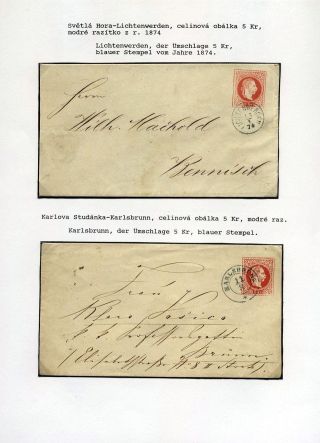 Světlá Hora-Lichtenwerden, celinová obálka 5 Kr,
modré razítko z r. 1874
Lichtenwerden, der Umschlage 5 Kr,
blauer Stempel vom Jahre 1874.
Herrn
Wilh. Maihold
Bennisch
Karlova Studánka-Karlsbrunn, celinová obálka 5 Kr, modré raz.
Karlsbrunn, der Umschlage 5 Kr, blauer Stempel.
Frau
k k Professorsgattin
Brünn